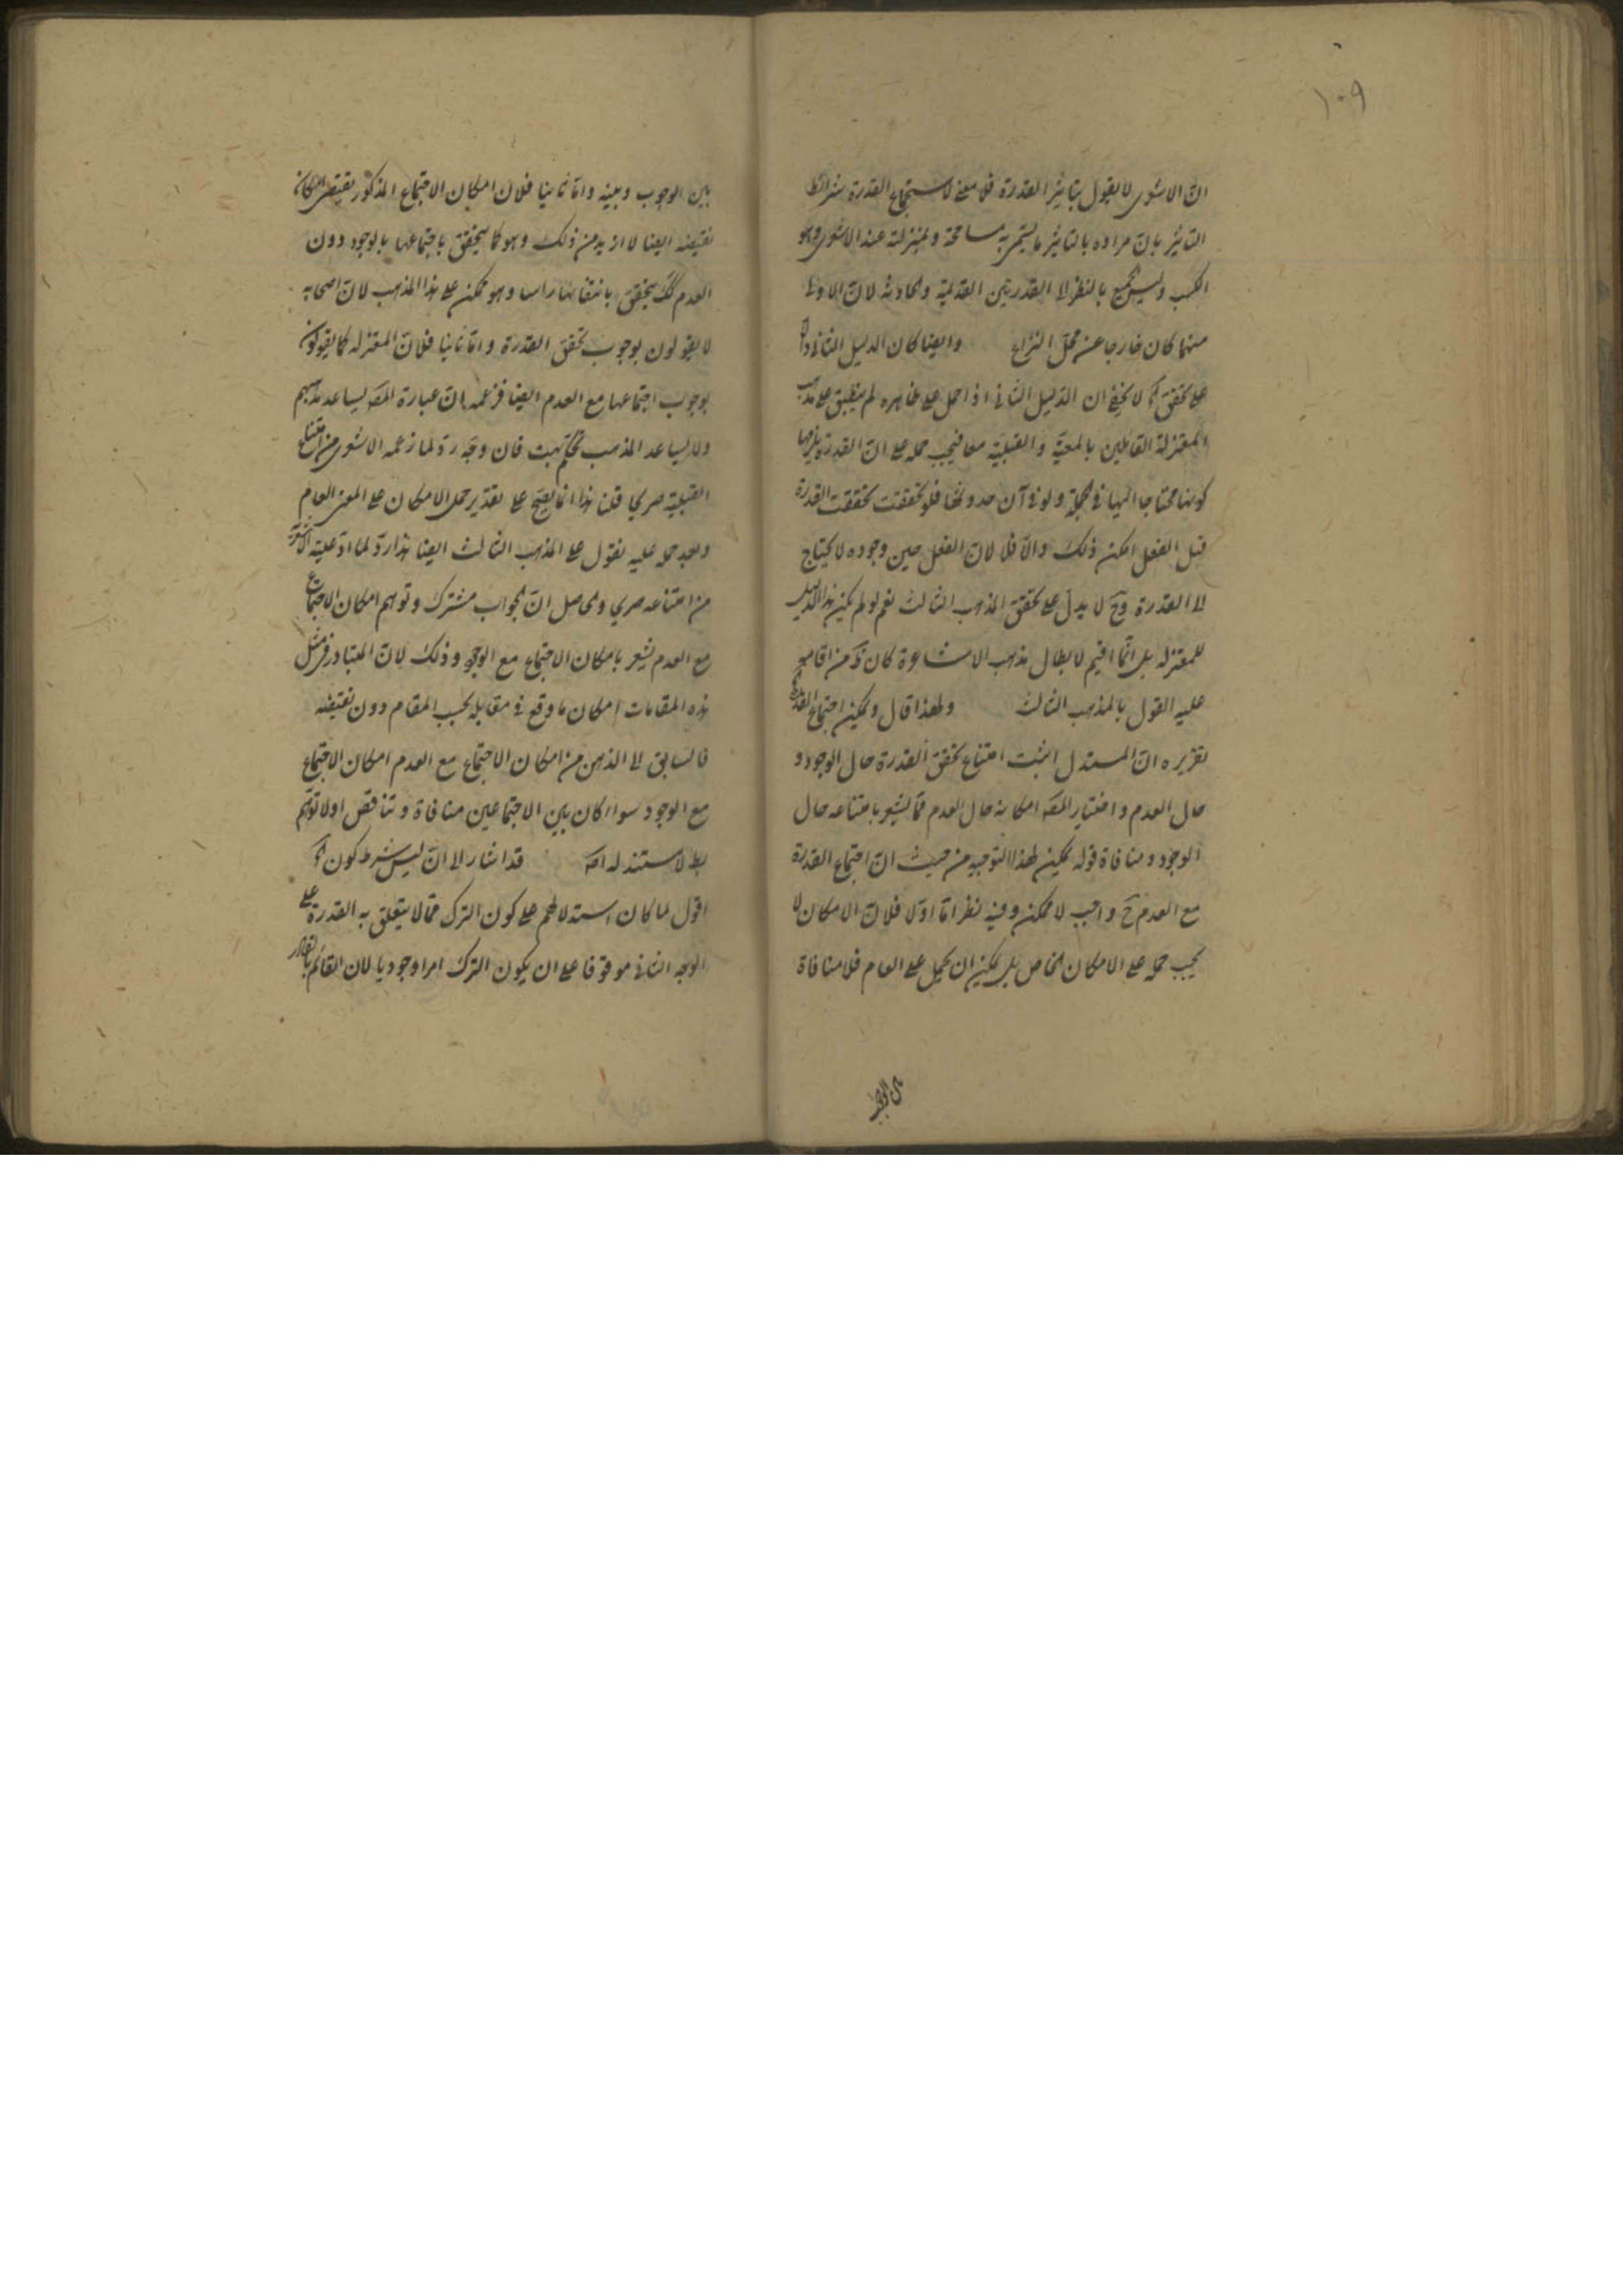 ١٠٩
ان الاشعرى لا يقول بتاثير القدرة فلا معنى لاستجماع القدرة شرائط
التاثير بان مراده بالتاثير ما يسمى به مسامحة وبمنزلته عند الاشعرى وهو
الكسب وليس بجميع بالنظر الى القدرتين القديمة والحادثة لان الاولى
منهما كان خارجا عن محل النزاع وايضا كان الدليل الثانى دالا
على تحقق لا يخفى ان الدليل الثانى اذا حمل على ظاهره لم ينطبق على مذهب
المعتزلة القائلين بالمعية والقبلية معا فيجب حمله على ان القدرة يلزمها
كونها محتاجا اليها فى الجملة ولو فى آن حدوثها فلو تحققت تحققت القدرة
قبل الفعل امكن ذلك والا فلا لان الفعل حين وجوده لا يحتاج
الى القدرة وح لا يدل على تحقق المذهب الثالث نعم لو لم يكن هذا الدليل
للمعتزلة بل انما اقيم لابطال مذهب الاشاعرة كان من اقامه
عليه القول بالمذهب الثالث ولهذا قال ويمكن اجتماع القدرة
تقريره ان المستدل اثبت امتناع تحقق القدرة حال الوجود و
حال العدم واختيار المصـ امكانه حال العدم مما يشعر بامتناعه حال
الوجود ومنافاة قوله يمكن لهذا التوجيه من حيث ان اجتماع القدرة
مع العدم ح واجب لا ممكن وفيه نظر اما اولا فلان الامكان لا
يجب حمله على الامكان الخاص بل يمكن ان يحمل على العام فلا منافاة
بين الوجوب وبينه واما ثانيا فلان امكان الاجتماع المذكور يقتضى امكان
نقيضه ايضا لا ازيد من ذلك وهو كما يتحقق باجتماعها بالوجود دون
العدم كك يتحقق بانتفائها راسا وهو ممكن على هذا المذهب لان اصحابه
لا يقولون بوجوب تحقق القدرة واما ثانيا فلان المعتزله كما يقولون
بوجوب اجتماعها مع العدم ايضا فزعمه ان عبارة المصـ يساعد مذهبهم
ولا يساعد المذهب تحكم بحت فان وجه ردّ لما زعمه الاشعرى من امتناع
القبلية صريحا قلنا هذا انما يصح على تقدير حمل الامكان على المعنى العام
وبعد حمله عليه نقول على المذهب الثالث ايضا هذا ردّ لما ادعيته الاشعرية
من امتناعه صريحا والحاصل ان الجواب مشترك وتوهم امكان الاجتماع
مع العدم يشعر بامكان الاجتماع مع الوجود وذلك لان المتبادر فى مثل
هذه المقامات امكان ما وقع فى مقابله بحسب المقام دون نقيضه
فالسابق الى الذهن من امكان الاجتماع مع العدم امكان الاجتماع
مع الوجود سواء كان بين الاجتماعين منافاة وتناقض اولا توهم
لا مستند له اصـ قد اشار الى ان ليس شرط كون
اقول لما كان استدلالهم على كون الترك مما لا يتعلق به القدرة على
الوجه الثانى موقوفا على ان يكون الترك امرا وجوديا لان القائم بالقادر